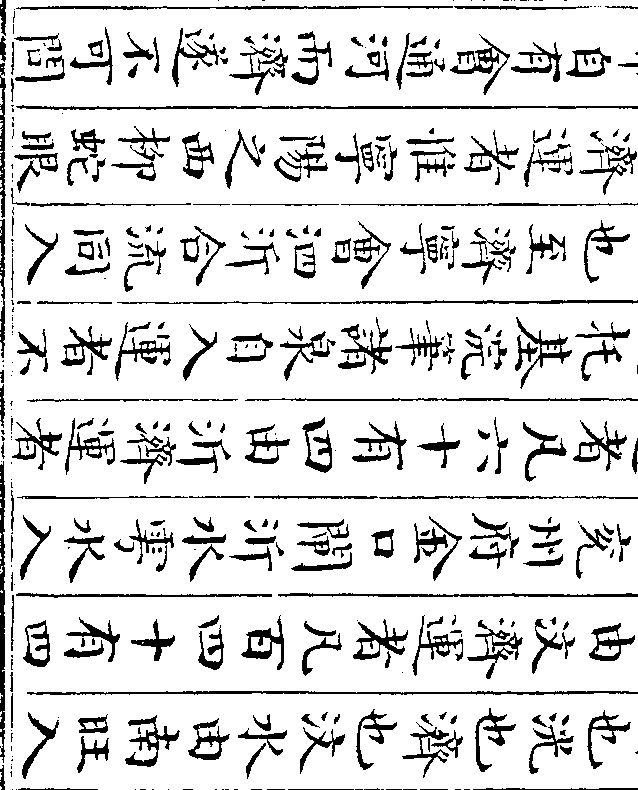 也洸也濟也汶水由南旺入
由汶濟運者凡百四十有四
兗州府金口閘沂水雩水入
者凡六十有四由沂濟運者
托基浣筆諸泉自入運者不
也至濟寧會泗沂合流同入
濟運者惟寧陽之西柳蛇眼
自有會通河而濟遂不可問